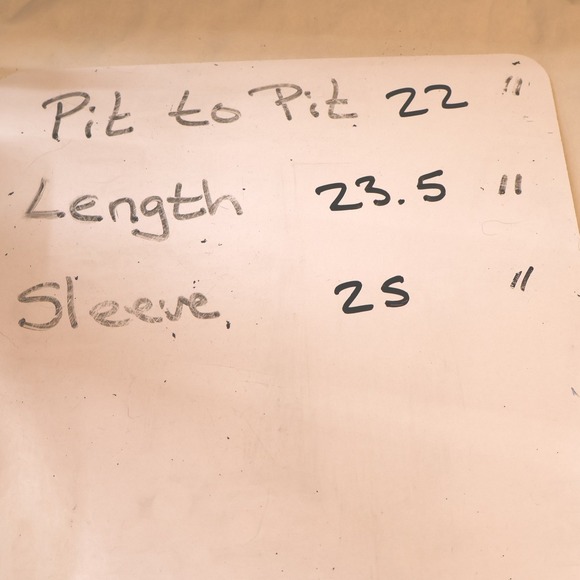 Pit to Pit 22 "
Length 23.5 "
Sleeve 25 "